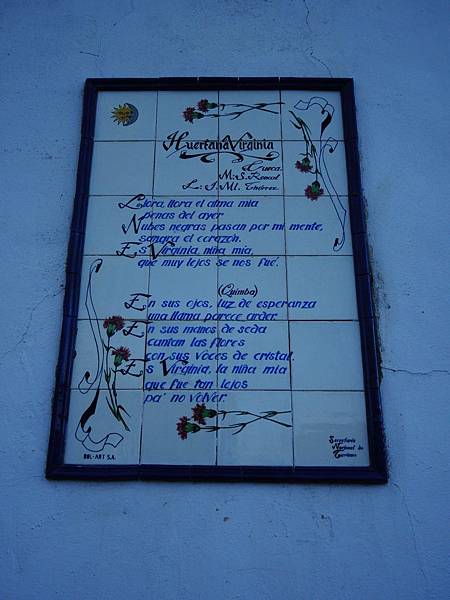 Huerfana Virginia
Cueca.
M: S. Roncal
L: J. Ml. Thórrez
Llora, llora el alma mía
penas del ayer
Nubes negras pasan por mi mente,
sangra el corazón.
Es Virginia, niña mía,
que muy lejos se nos fué.
(Quimba)
En sus ojos, luz de esperanza
una llama parece arder.
En sus manos de seda
cantan las flores
con sus voces de cristal.
Es Virginia, la niña mía
que fue tan lejos
pa' no volver.
BOL-ART S.A.
Secretaría
Nacional de
Turismo